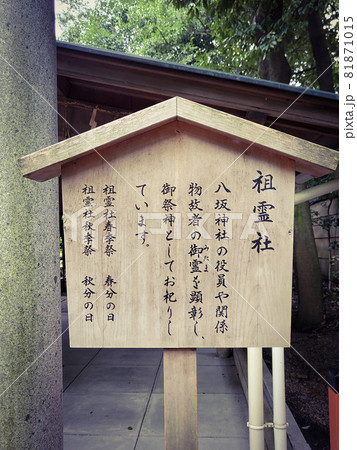 祖霊社
八坂神社の役員や関係
物故者の御霊を顕彰し、
みたま
御祭神としてお祀りし
ています。
祖霊社春季祭 春分の日
祖霊社秋季祭 秋分の日
PIXTA
pixta.jp - 81871015